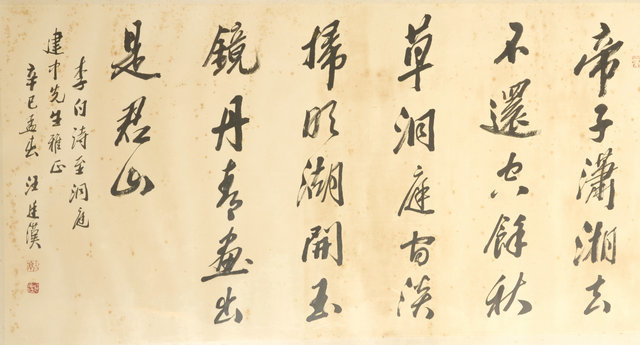 帝子瀟湘去
不還空餘秋
草洞庭間淡
掃明湖開玉
鏡丹青畫出
是君山
李白詩至洞庭
建中先生雅正
辛巳孟春 汪